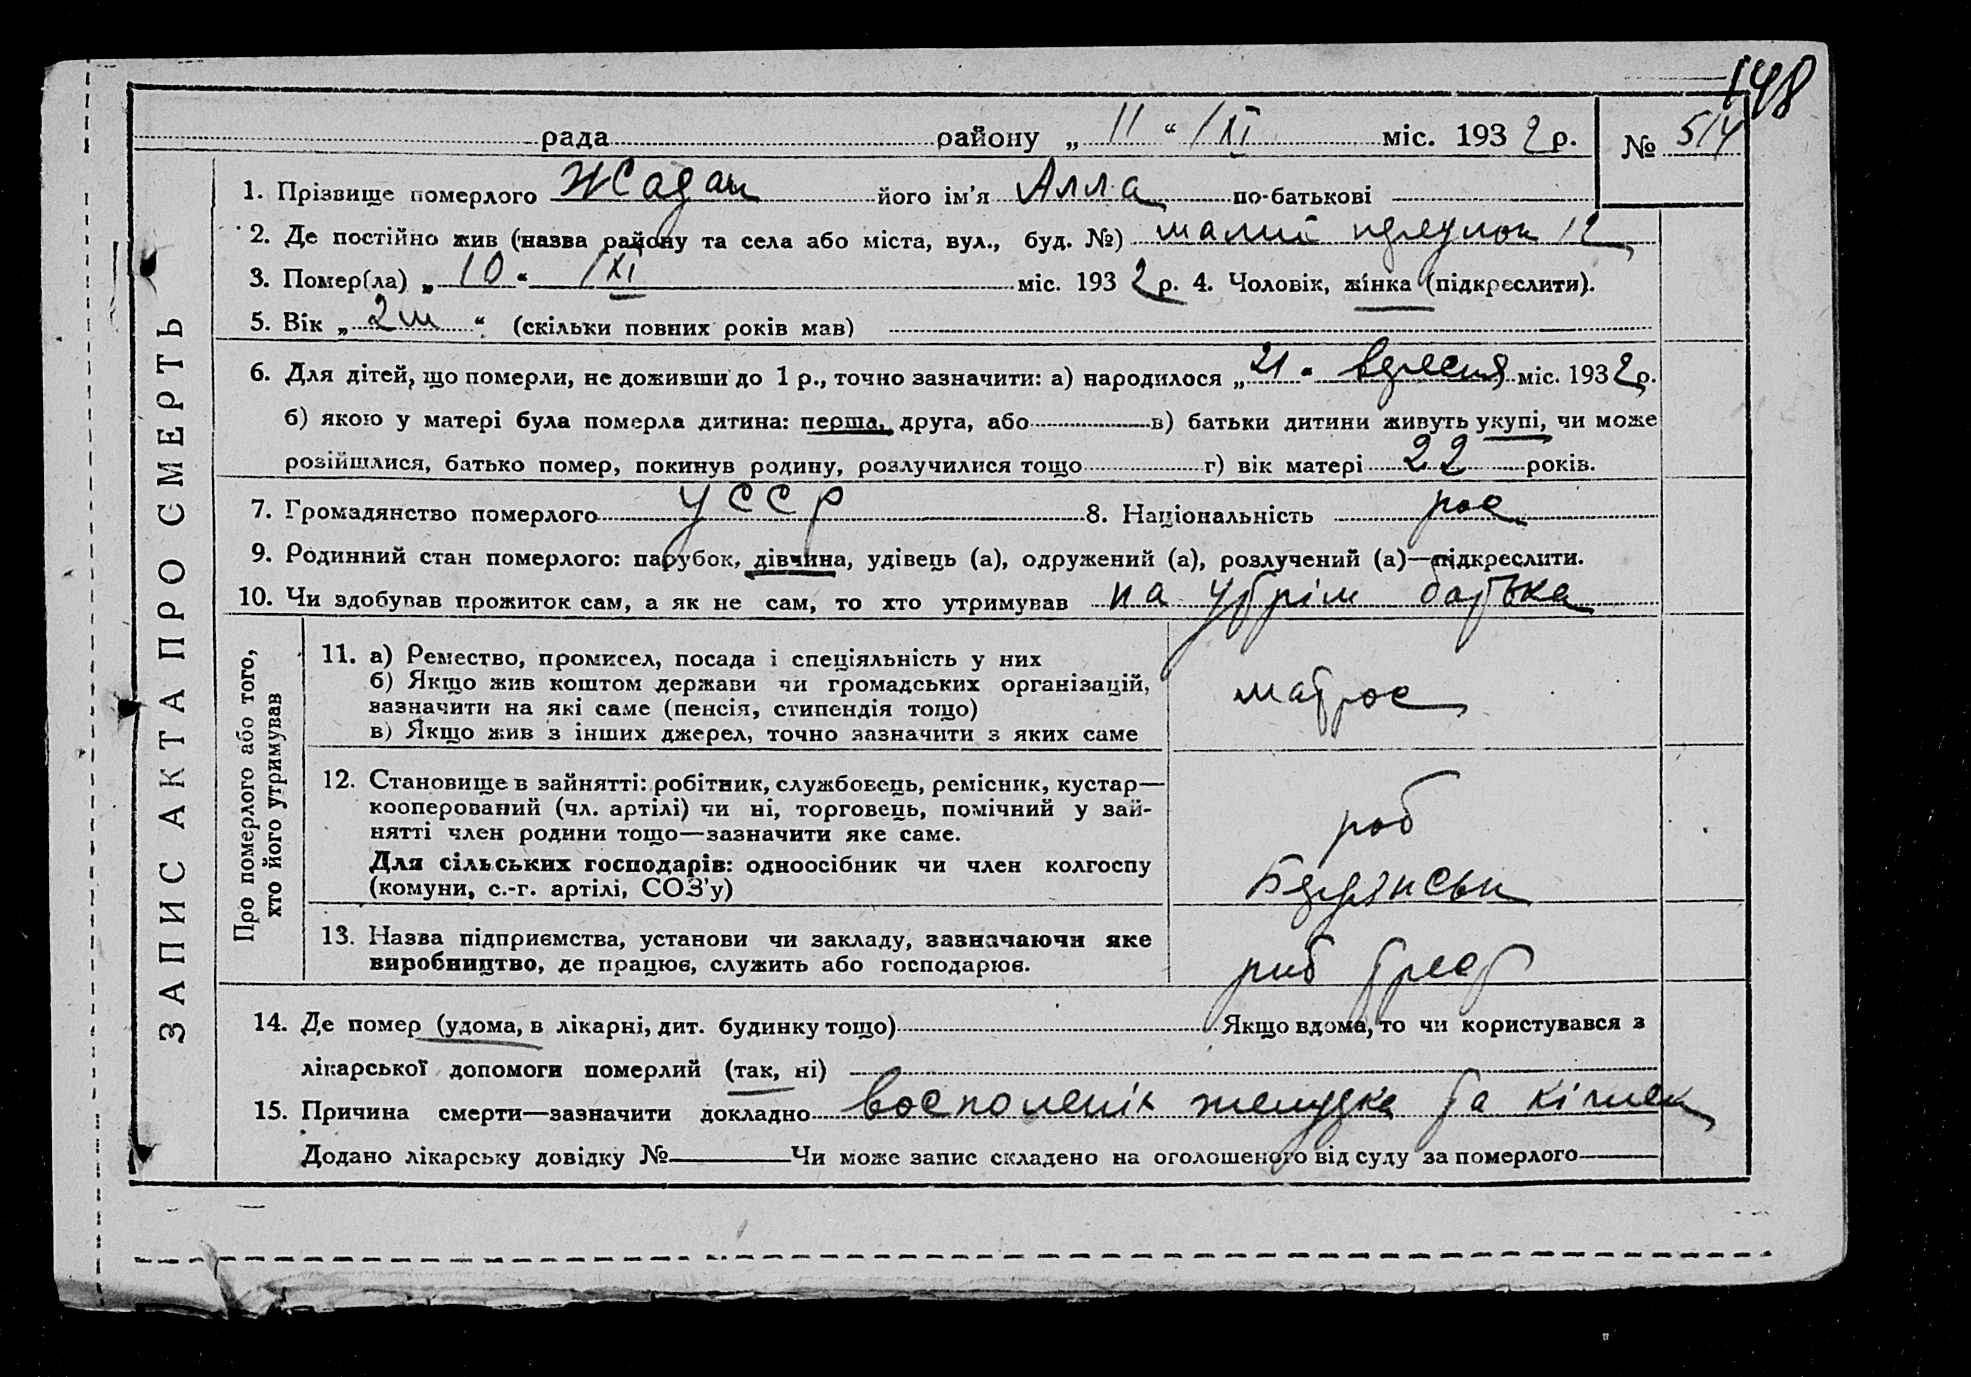 148
рада районy „ 11 “ / XI міс. 193 2 р. № 514
1. Прізвище померлого Жадан його ім'я Алла по-батькові
2. Де постійно жив (назва району та села або міста, вул., буд. №) малий 12
3. Помер(ла) „ 10 “ / XI міс. 193 2 р. 4. Чоловік, жінка (підкреслити).
5. Вік „ 2 м “ (скільки повних років мав)
6. Для дітей, що померли, не доживши до 1 р., точно зазначити: а) народилося „ 21 “ вересня міс. 193 2 р.
б) якою у матері була померла дитина: перша, друга, або в) батьки дитини живуть укупі, чи може
розійшлися, батько помер, покинув родину, розлучилися тощо г) вік матері 22 років.
7. Громадянство померлого УССР 8. Національність рос
9. Родинний стан померлого: парубок, дівчина, удівець (а), одружений (а), розлучений (а)—підкреслити.
10. Чи здобував прожиток сам, а як не сам, то хто утримував на утрім батька
ЗАПИС АКТА ПРО СМЕРТЬ
Про померлого або того,
хто його утримував
11. а) Ремество, промисел, посада і спеціяльність у них
б) Якщо жив коштом держави чи громадських організацій,
зазначити на які саме (пенсія, стипендія тощо)
в) Якщо жив з інших джерел, точно зазначити з яких саме
матрос
12. Становище в зайнятті: робітник, службовець, ремісник, кустар—
кооперований (чл. артілі) чи ні, торговець, помічний у зай-
нятті член родини тощо—зазначити яке саме.
Для сільських господарів: одноосібник чи член колгоспу
(комуни, с.-г. артілі, СОЗ'у)
роб
13. Назва підприємства, установи чи закладу, зазначаючи яке
виробництво, де працює, служить або господарює.
риб трест
14. Де помер (удома, в лікарні, дит. будинку тощо) Якщо вдома, то чи користувався з
лікарської допомоги померлий (так, ні)
15. Причина смерти—зазначити докладно восполеник желудка та кішек
Додано лікарську довідку № Чи може запис складено на оголошеного від суду за померлого